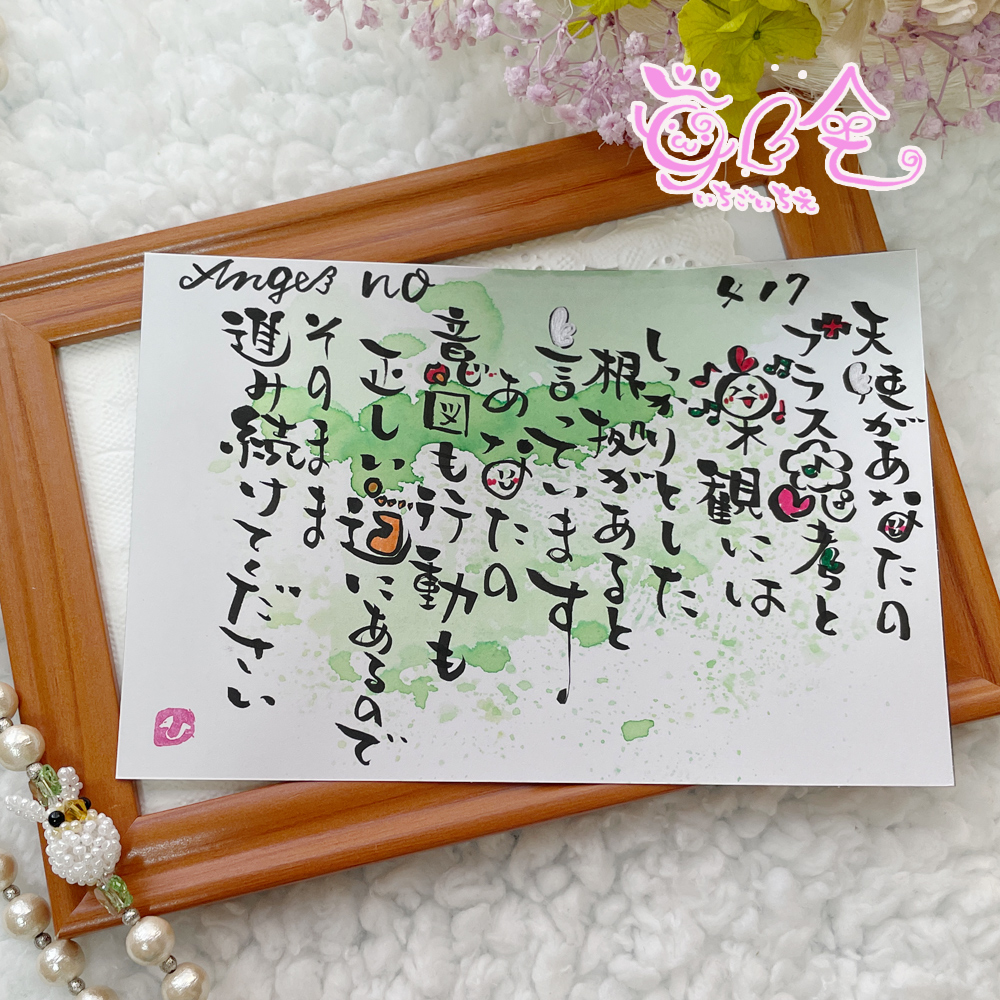 Angel no 417
天使があなたの
プラス思考と
楽観には
しっかりとした
根拠があると
言っています
あなたの
意図も行動も
正しい道にあるので
そのまま
進み続けてください
いちごいちえ